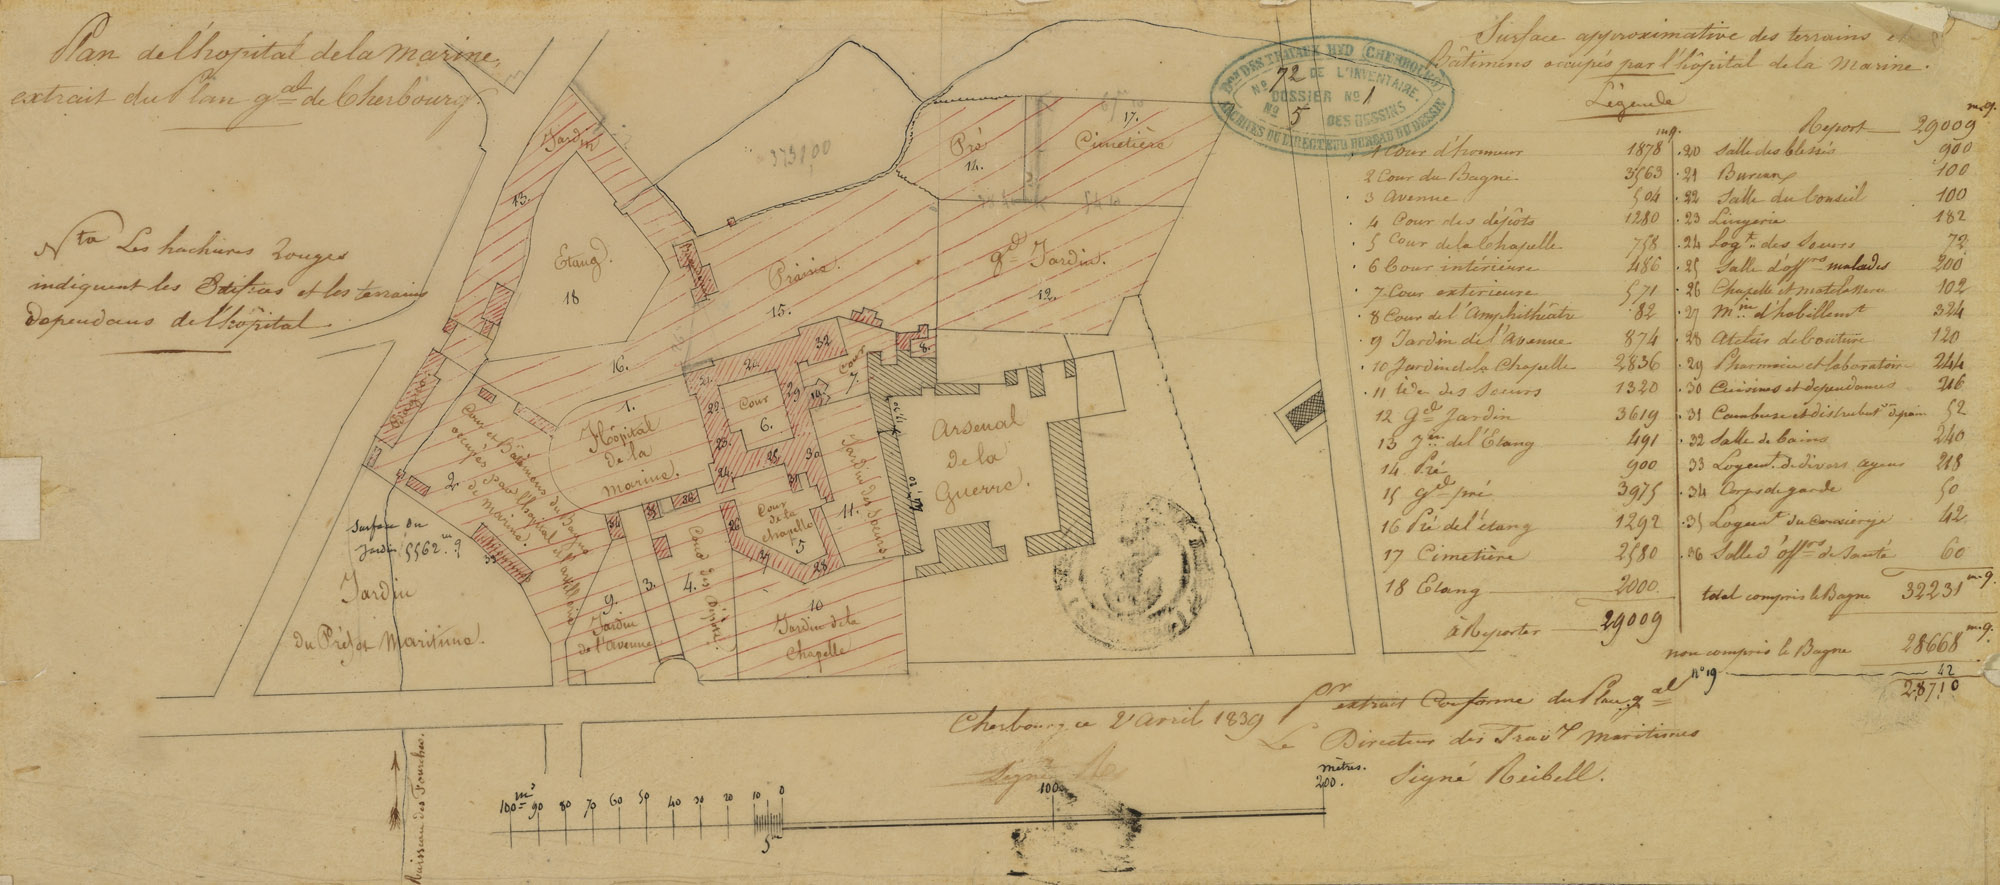 Plan de l'hopital de la marine,
extrait du Plan gal de Cherbourg.
Nta Les hachures rouges
indiquent les Edifices et les terrains
dependans de l'hôpital
Bon DES TRAVAUX HYD (CHERBOURG)
No 72 DE L'INVENTAIRE
DOSSIER No 1
No 5 DES DESSINS
ARCHIVES DU DIRECTEUR BUREAU DU DESSIN
Surface approximative des terrains et
Bâtimens occupés par l'hôpital de la marine.
Légende
m.q.
1 Cour d'honneur 1878
2 Cour du Bagne 3563
3 Avenue 504
4 Cour des dépôts 1280
5 Cour de la Chapelle 758
6 Cour intérieure 486
7 Cour exterieure 571
8 Cour de l'Amphithéâtre 82
9 Jardin de l'Avenue 874
10 Jardin de la Chapelle 2836
11 id. des Soeurs 1320
12 Gd Jardin 3619
13 Jin de l'Etang 491
14 Pré 900
15 Gd pré 3975
16 Pré de l'étang 1292
17 Cimetière 2580
18 Etang 2000
à Reporter 29009
m.q.
Report 29009
20 Salle des blessés 900
21 Bureaux 100
22 Salle du Conseil 100
23 Lingerie 182
24 Logt des Soeurs 72
25 Salle d'offers malades 200
26 Chapelle et matelasserie 102
27 Min d'habillemt 324
28 Atelier de Couture 120
29 Pharmacie et laboratoire 244
30 Cuisines et dependances 216
31 Cambuse et distributon de pain 52
32 Salle de bains 240
33 Logemt de divers agens 218
34 Corps de garde 50
35 Logemt du concierge 42
36 Salle d'offrs de Santé 60
total compris le Bagne 32231 m.q.
non compris le Bagne 28668 m.q.
no 19 42
28710
Jardin
13.
Etang.
18
3731,00
Pré
14.
17.
Cimetière
Prairie.
15.
gd Jardin.
12.
16.
1.
Hôpital
de la
marine.
Cour
6.
Cour
7.
8.
32
20
21
22
23
24
25
29
19
30
31
Jardin des Soeurs.
11.
Arsenal
de la
Guerre.
Cour et Bâtimens du Bagne
occupés par l'hôpital et l'artillerie
de Marine.
2.
33
34
35
36
Surface du
Jardin 5562 m q
Jardin
du Préfet Maritime.
9.
Jardin
de l'Avenue
3.
4.
Cour des Dépôts.
Cour
de la
chapelle
5
26
27
28
10
Jardin de la
Chapelle
Cherbourg, ce 2 Avril 1839
Pr extrait Conforme du Plan gal
Le Directeur des Travx maritimes
Signé Reibell.
Signé
Ruisseau des Fourches.
100 m 90 80 70 60 50 40 30 20 10 0
5
100
mètres.
200.